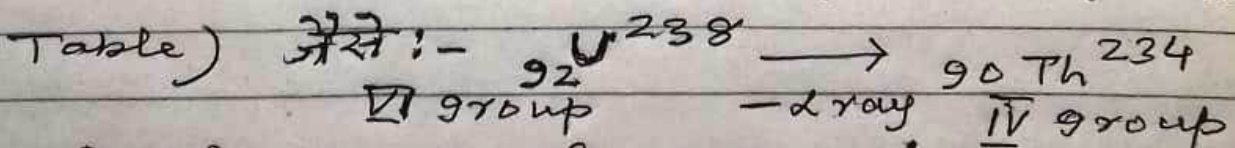 Table) जैसे :- ₉₂U²³⁸ ⟶ ₉₀Th²³⁴
VI group -α ray IV group